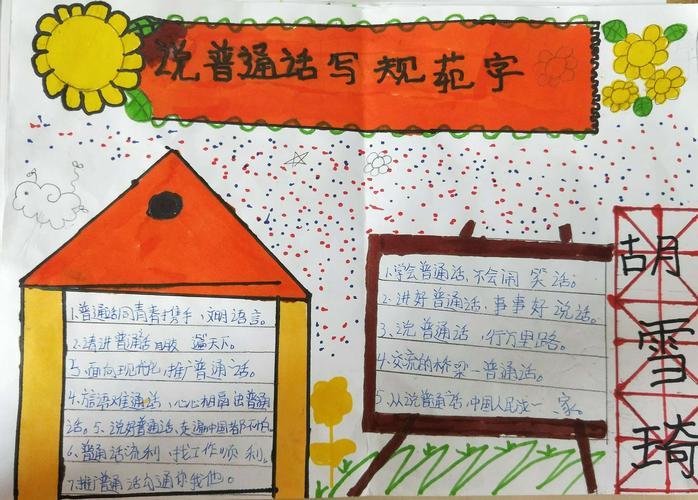 说普通话写规范字
1.普通话同青春携手，文明语言。
2.请讲普通话
3.面向现代化，推广普通话。
4.言语难通话，心心相
话。5、说好普通话，走遍中国都不怕。
6、普通话流利，找工作顺利。
7.推广普通话沟通你我他。
1.学会普通话，不会闹笑话。
2.讲好普通话，事事好说话。
3、说普通话，行万里路。
4.交流的桥梁一普通话。
5、从说普通话，中国人民成一家。
胡
雪
琦